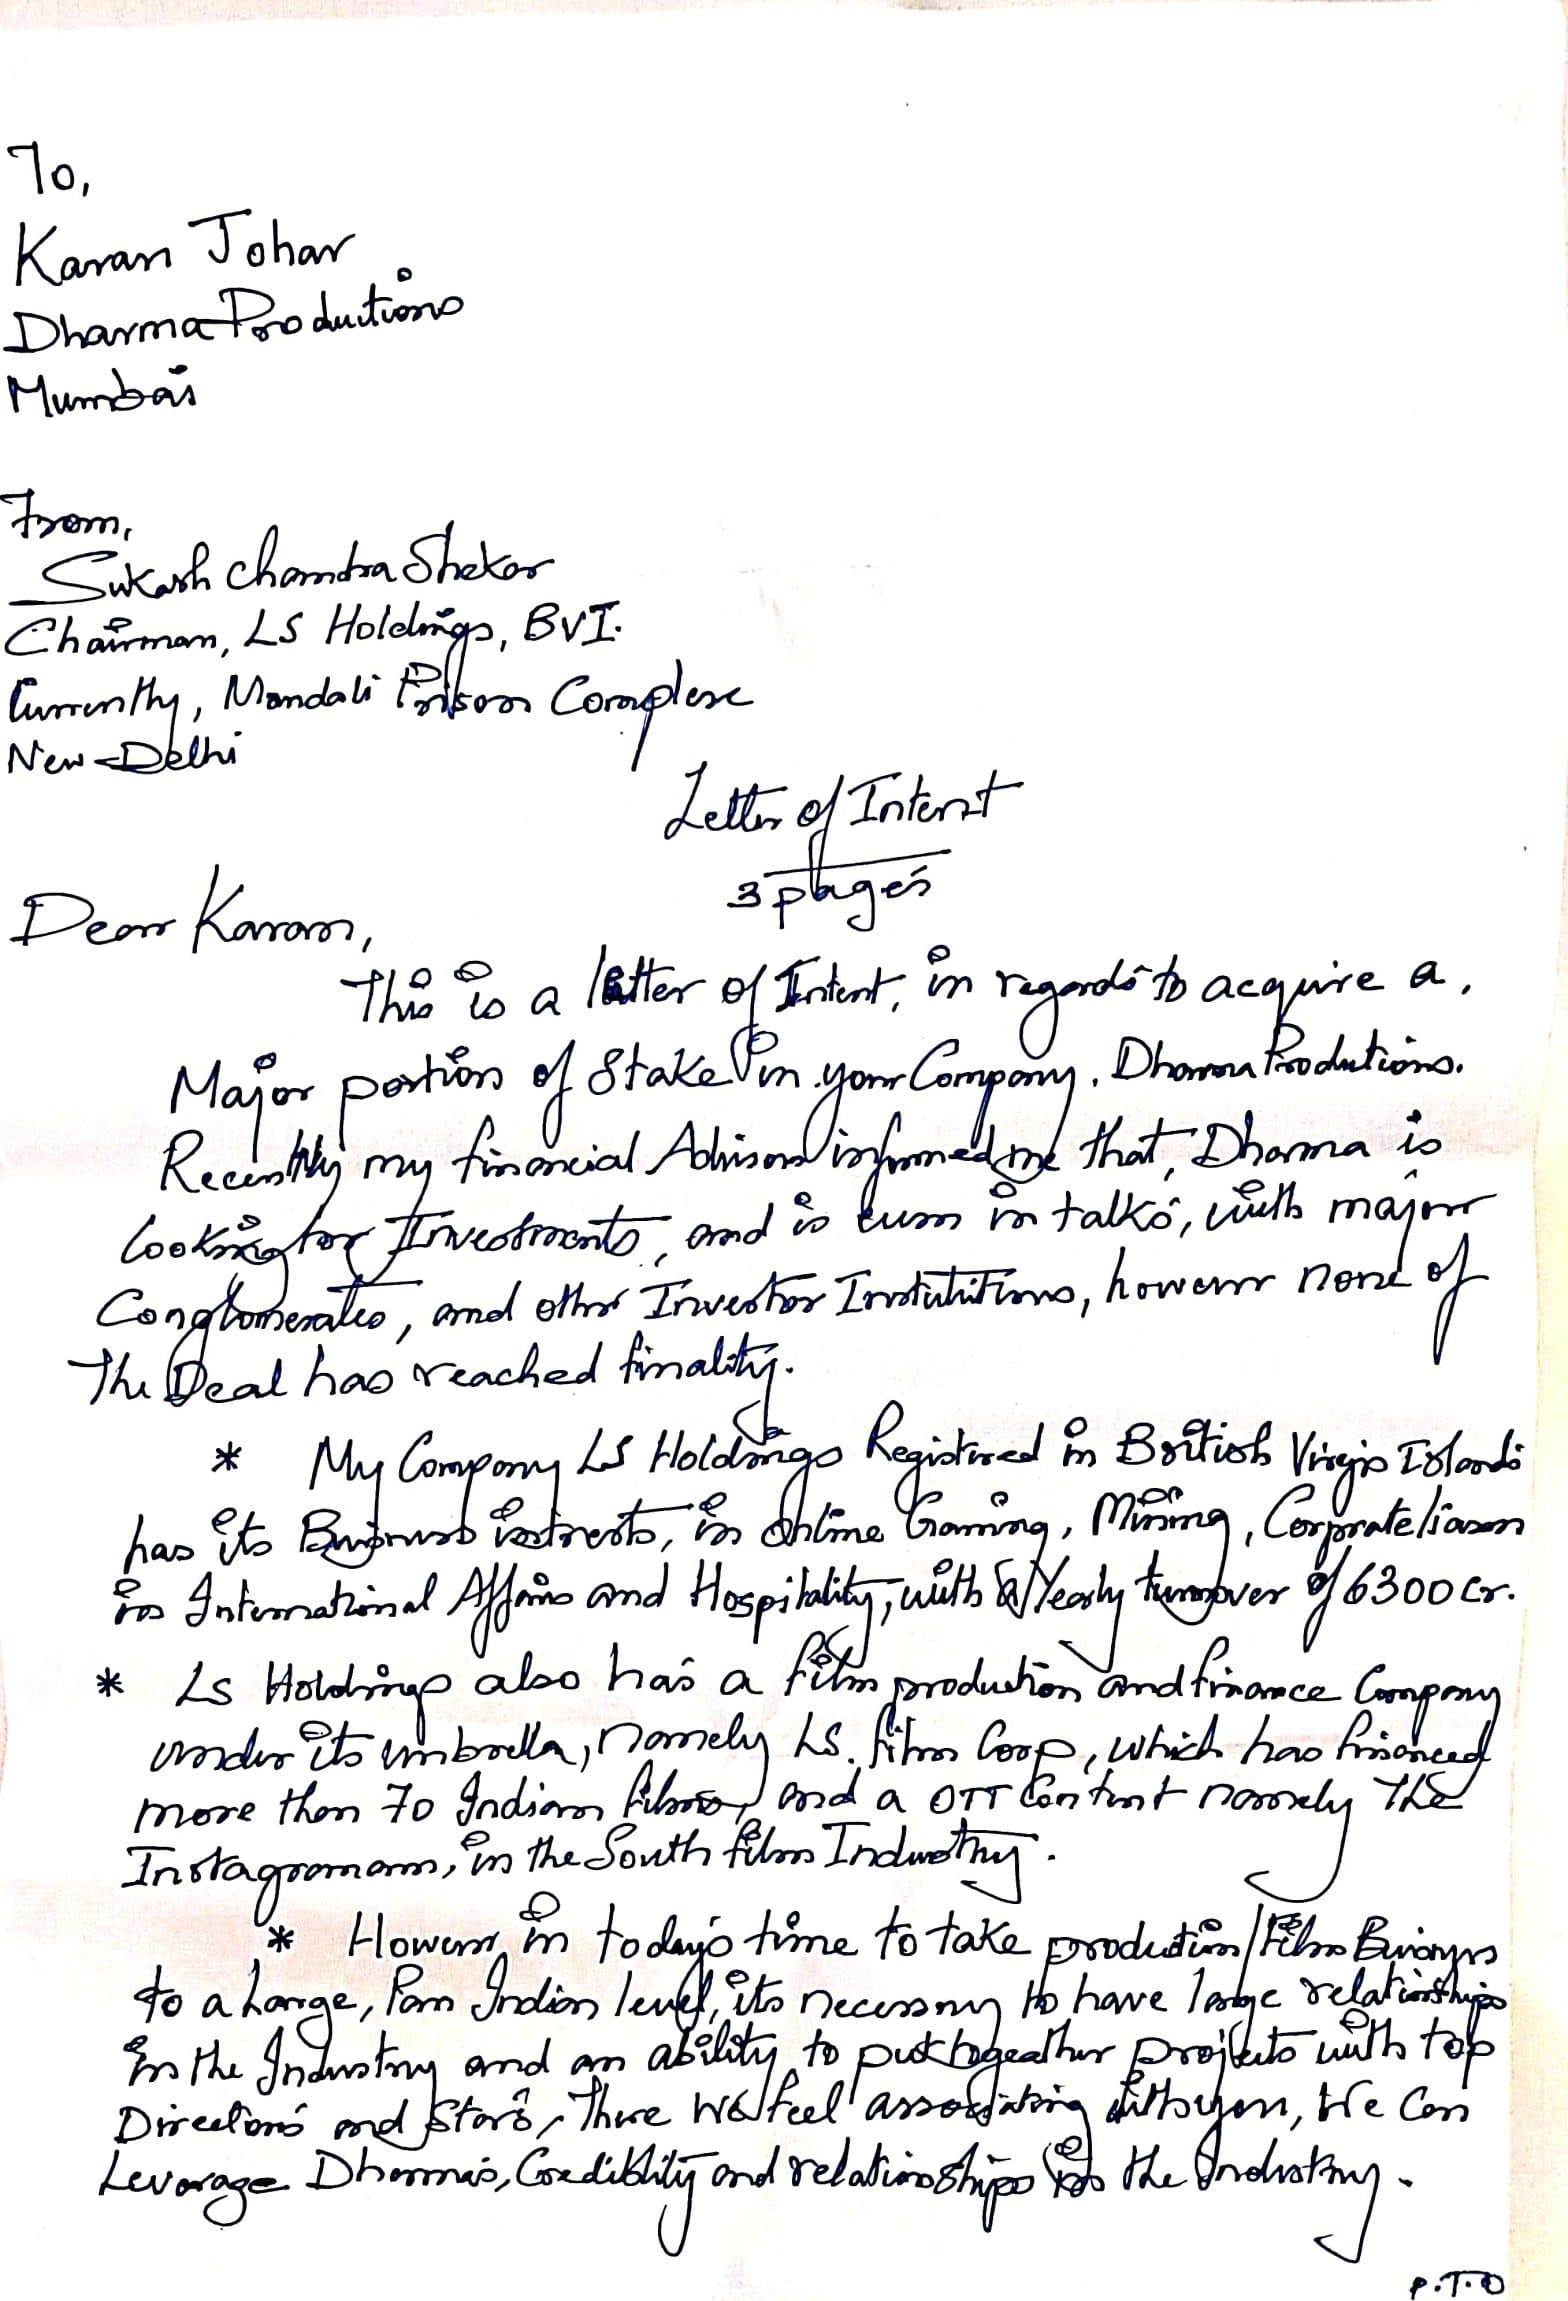 To,
Karan Johar
Dharma Productions
Mumbai
From,
Sukash Chandra Shekar
Chairman, LS Holdings, BVI.
Currently, Mandali Prison Complex
New-Delhi
Letter of Intent
3 pages
Dear Karan,
This is a letter of Intent, in regards to acquire a,
Major portion of Stake in your Company, Dharma Productions.
Recently my financial Advisors informed me that, Dharma is
looking for Investments, and is even in talks, with major
Conglomerates, and other Investor Institutions, however none of
The Deal has reached finality.
* My Company LS Holdings Registered in British Virgin Islands
has its Business intrests, in Online Gaming, Mining, Corporate liason
in International Affairs and Hospitality, with a Yearly turnover of 6300 Cr.
* LS Holdings also has a film production and finance Company
under its umbrella, namely LS. Film Corp, which has financed
more than 70 Indian films, and a OTT Content namely The
Instagramam, in the South film Industry.
* However in today's time to take production/Film Business
to a Large, Pan Indian level, its necessary to have large relationships
in the Industry and an ability to put togeather projects with top
Directors and Stars, There We feel associating with you, We Can
Leverage Dharma's, Credibility and relationships in the Industry.
P.T.O